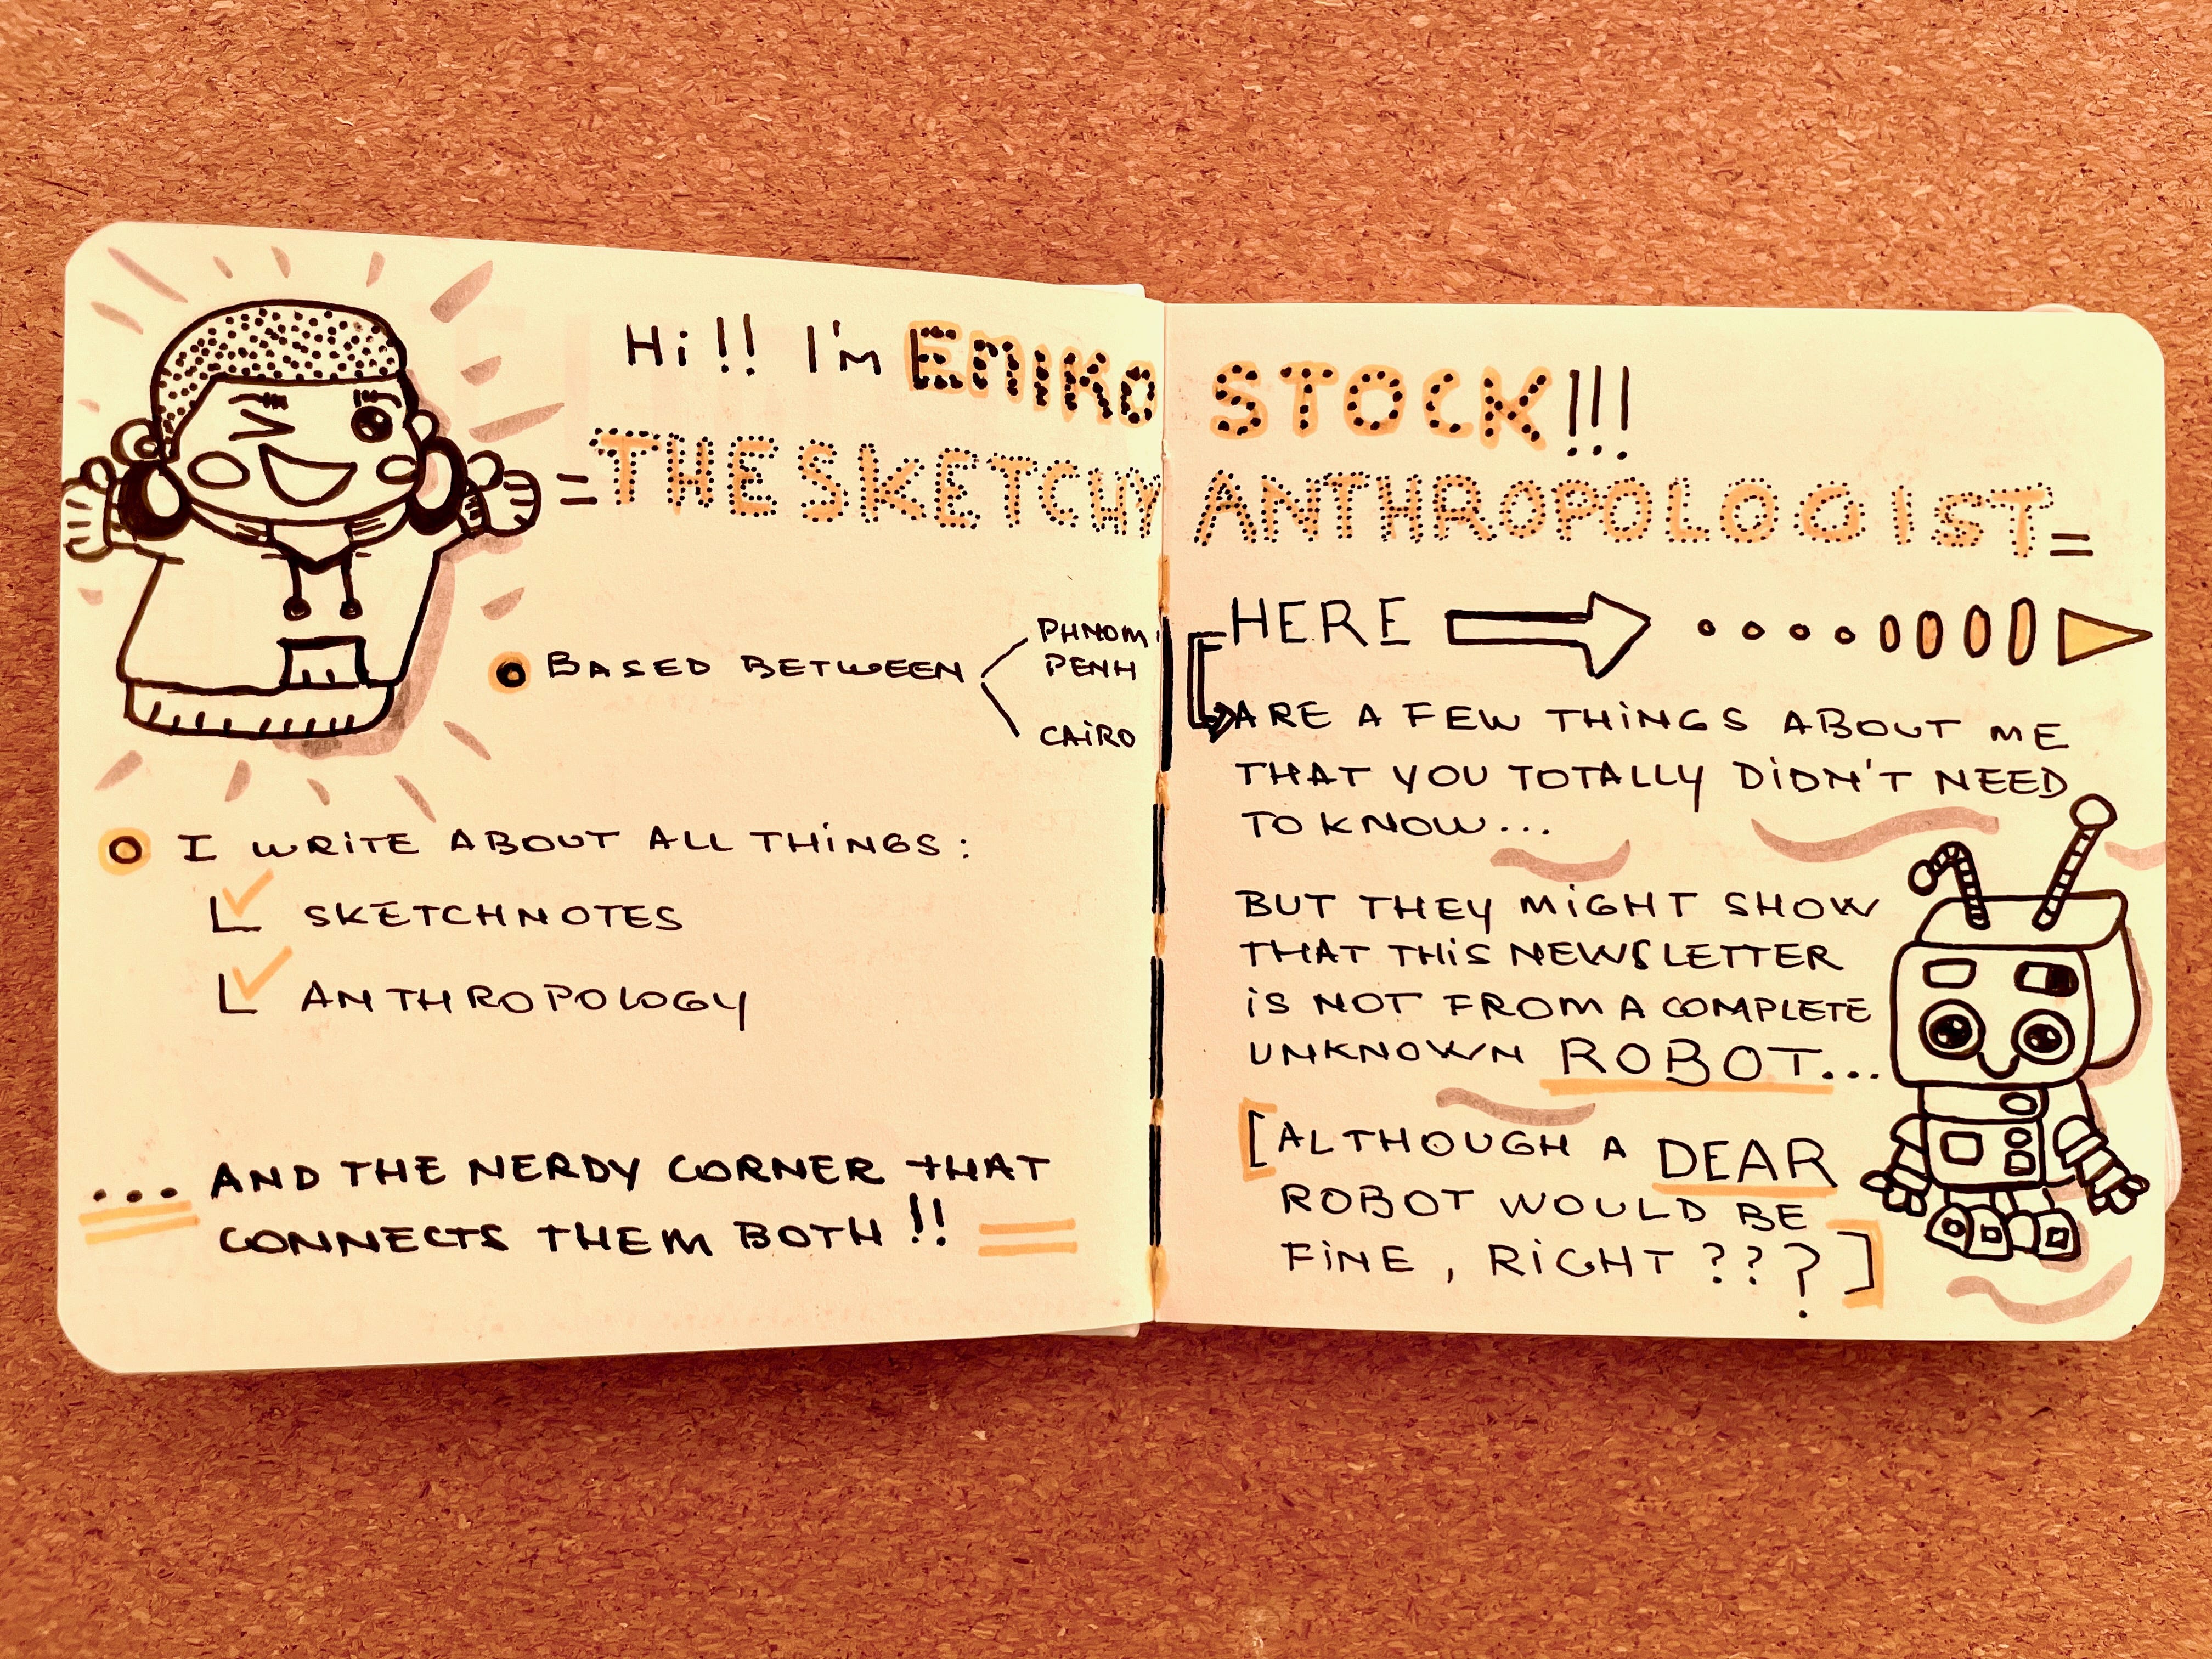 Hi!! I'm EMIKO STOCK!!!
= THE SKETCHY ANTHROPOLOGIST =
BASED BETWEEN
PHNOM
PENH
CAIRO
I WRITE ABOUT ALL THINGS:
SKETCHNOTES
ANTHROPOLOGY
... AND THE NERDY CORNER THAT
CONNECTS THEM BOTH!!
HERE
ARE A FEW THINGS ABOUT ME
THAT YOU TOTALLY DIDN'T NEED
TO KNOW...
BUT THEY MIGHT SHOW
THAT THIS NEWSLETTER
IS NOT FROM A COMPLETE
UNKNOWN ROBOT...
[ALTHOUGH A DEAR
ROBOT WOULD BE
FINE, RIGHT ???]